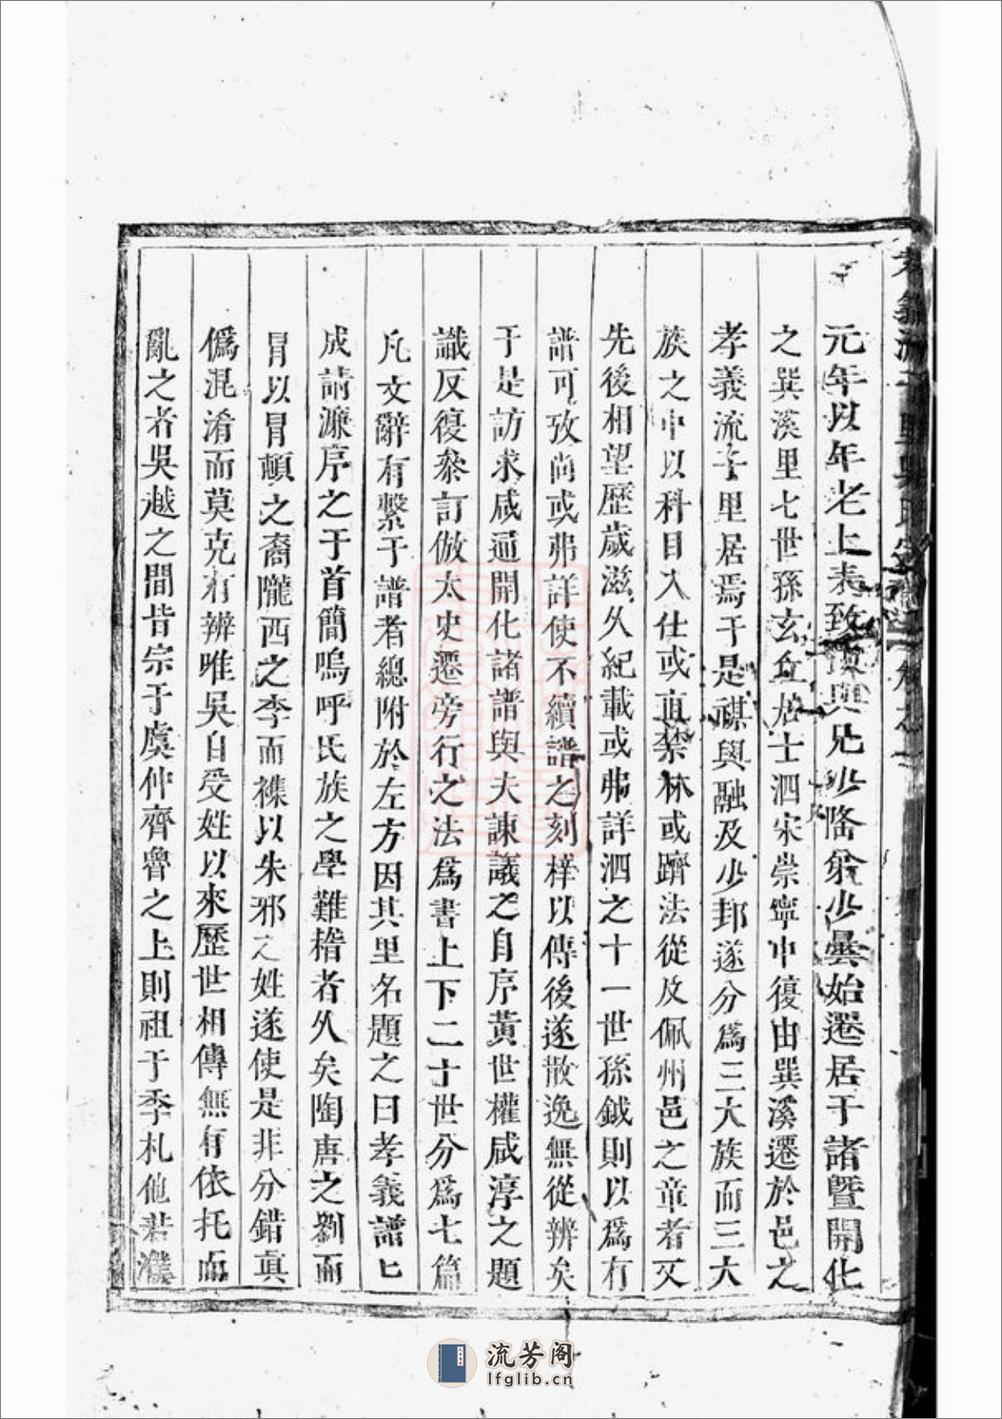 元年以年老上表致與兄少隆弟少曇始遷居于諸暨開化
之巽溪里七世孫玄立居士泗宋崇寧中復由巽溪遷於邑之
孝義流子里居焉于是祺與融及少邦遂分爲三大族而三大
族之中以科目入仕或直禁林或躋法從及佩州邑之章者又
先後相望歷歲滋久紀載或弗詳泗之十一世孫鉞則以爲有
譜可攷尚或弗詳使不續譜之刻梓以傳後遂散逸無從辨矣
于是訪求咸通開化諸譜與大諫議之自序黃世權咸淳之題
識反復叅訂倣太史遷旁行之法爲書上下二十世分爲七篇
凡文辭有繫于譜者總附於左方因其里名題之曰孝義譜已
成請濂序之于首簡嗚呼氏族之學難稽者久矣陶唐之劉而
冒以冒頓之裔隴西之李而襍以朱邪之姓遂使是非分錯真
僞混淆而莫克有辨唯吳自受姓以來歷世相傳無有依托而
亂之者吳越之間皆宗于虞仲齊魯之上則祖于季札他若濮
流芳阁
lfglib.cn